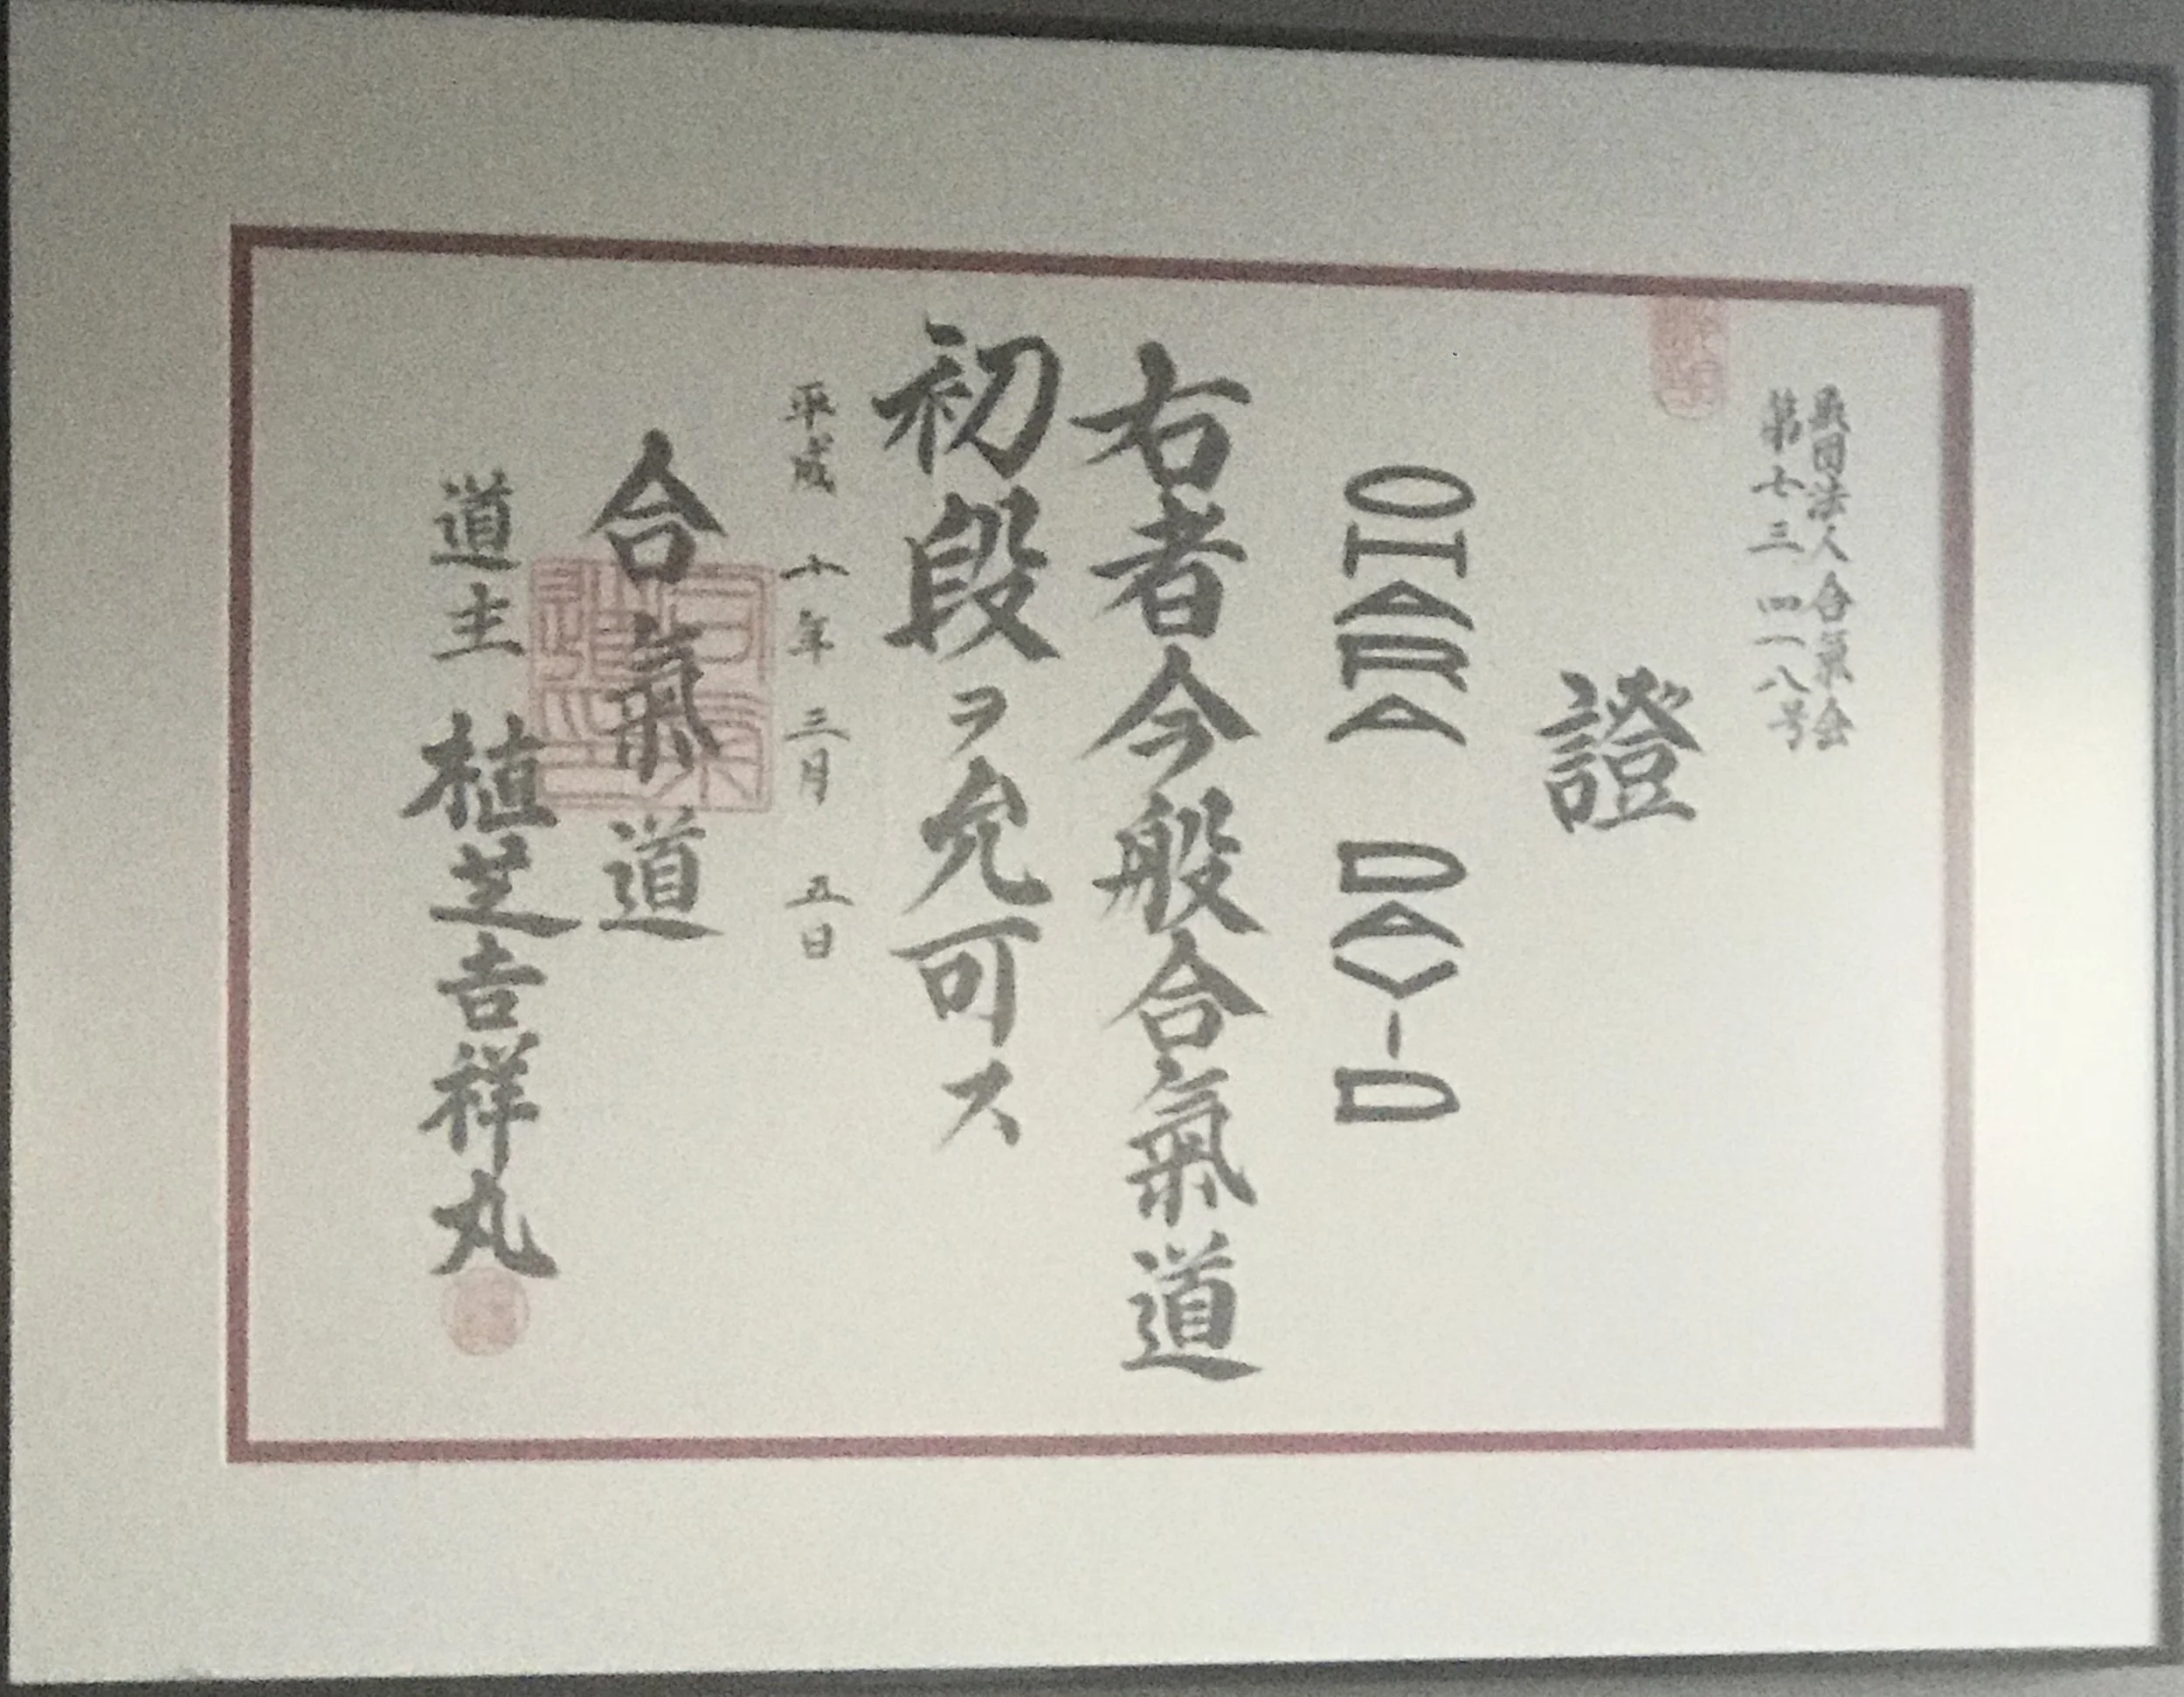 財団法人合氣会
第七三四一八号
證
OHARA DAVID
右者今般合氣道
初段ヲ允可ス
平成 十年 三月 五日
合氣道
道主 植芝吉祥丸